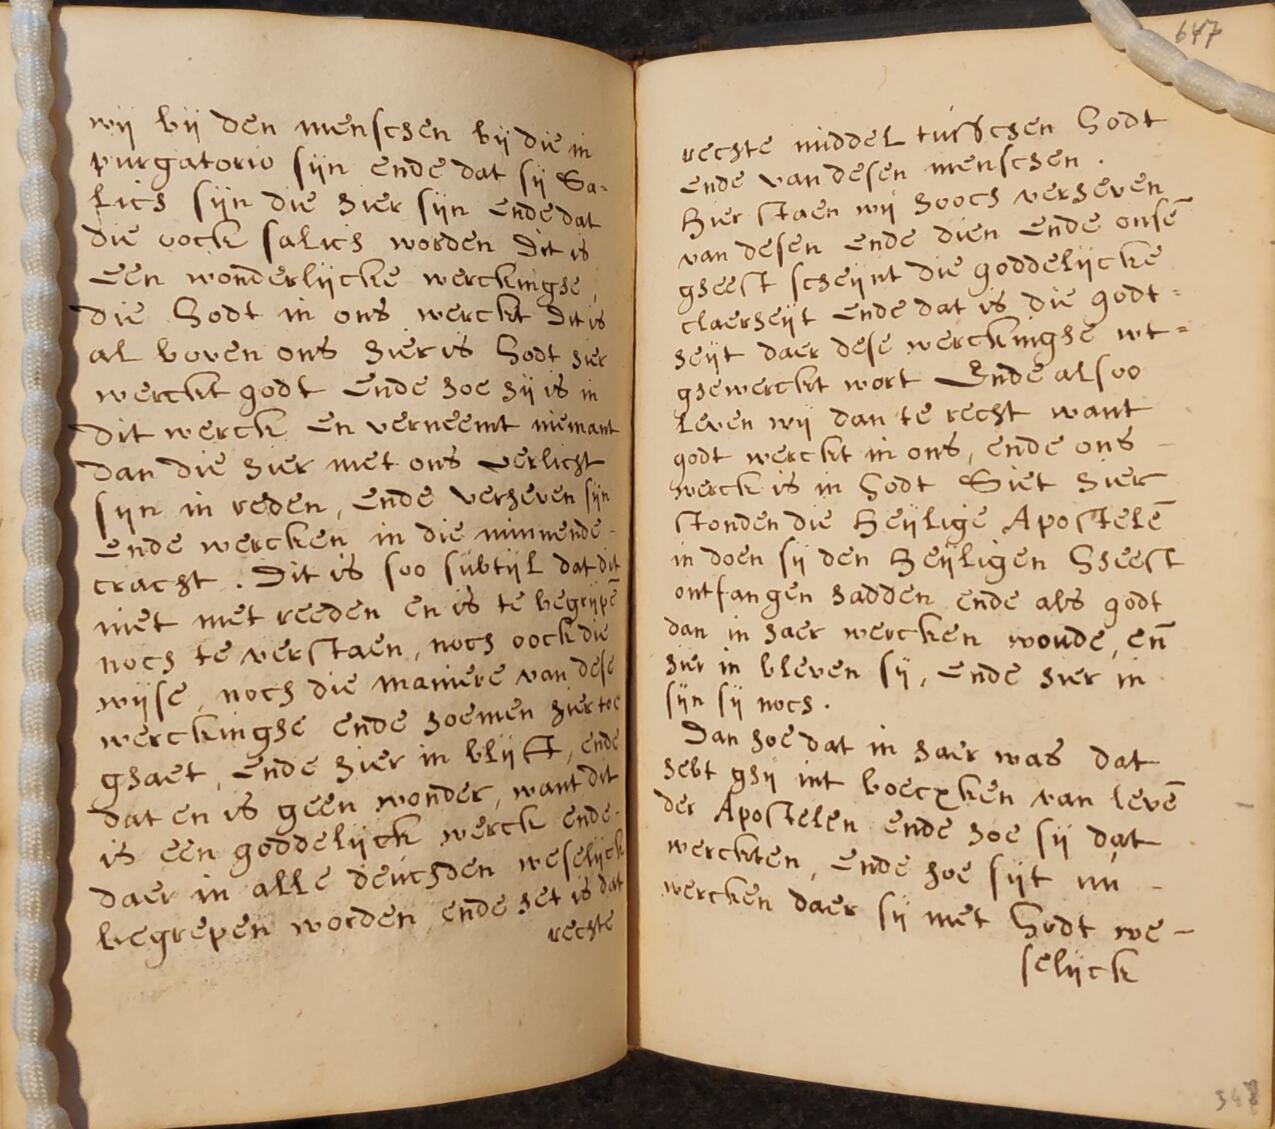 wij bij den menschen bij die in
purgatorio sijn ende dat sij Sa-
lich sijn die hier sijn ende dat
die oock salich worden Dit is
Een wonderlijcke werckinghe,
die Godt in ons werckt Dit is
al boven ons hier is Godt hier
werckt godt Ende hoe hij is in
dit werck en verneemt niemant
dan die hier met ons verlicht
sijn in reden, ende verheven sijn
ende wercken in die minnende-
cracht. Dit is soo subtijl dat dit
niet met reeden en is te begrijpē
noch te verstaen, noch oock die
wijse, noch die maniere van dese
werckinghe ende hoemen hier toe
ghaet, ende hier in blijft, ende
dat en is geen wonder, want dit
is een goddelijck werck ende-
daer in alle deuchden weselijck
begrepen worden, ende het is dat
rechte
647
rechte middel tusschen Godt
ende van desen menschen.
Hier staen wij hooch verheven
van desen ende dien ende onsē
gheest scheijnt die goddelijcke
claerheijt ende dat is die godt=
heijt daer dese werckinghe wt=
ghewerckt wort Ende alsoo
leven wij dan te recht want
godt werckt in ons, ende ons-
werck is in Godt Siet hier
stonden die Heijlige Apostelē
in doen sij den Heijligen Gheest
ontfangen hadden ende als godt
dan in haer wercken woude, eñ
hier in bleven sij, ende hier in
sijn sij noch.
Dan hoe dat in haer was dat
hebt ghij int boecxken van levē
der Apostelen ende hoe sij dat
werckten, ende hoe sijt nu -
wercken daer sij met Godt we-
selijck
348